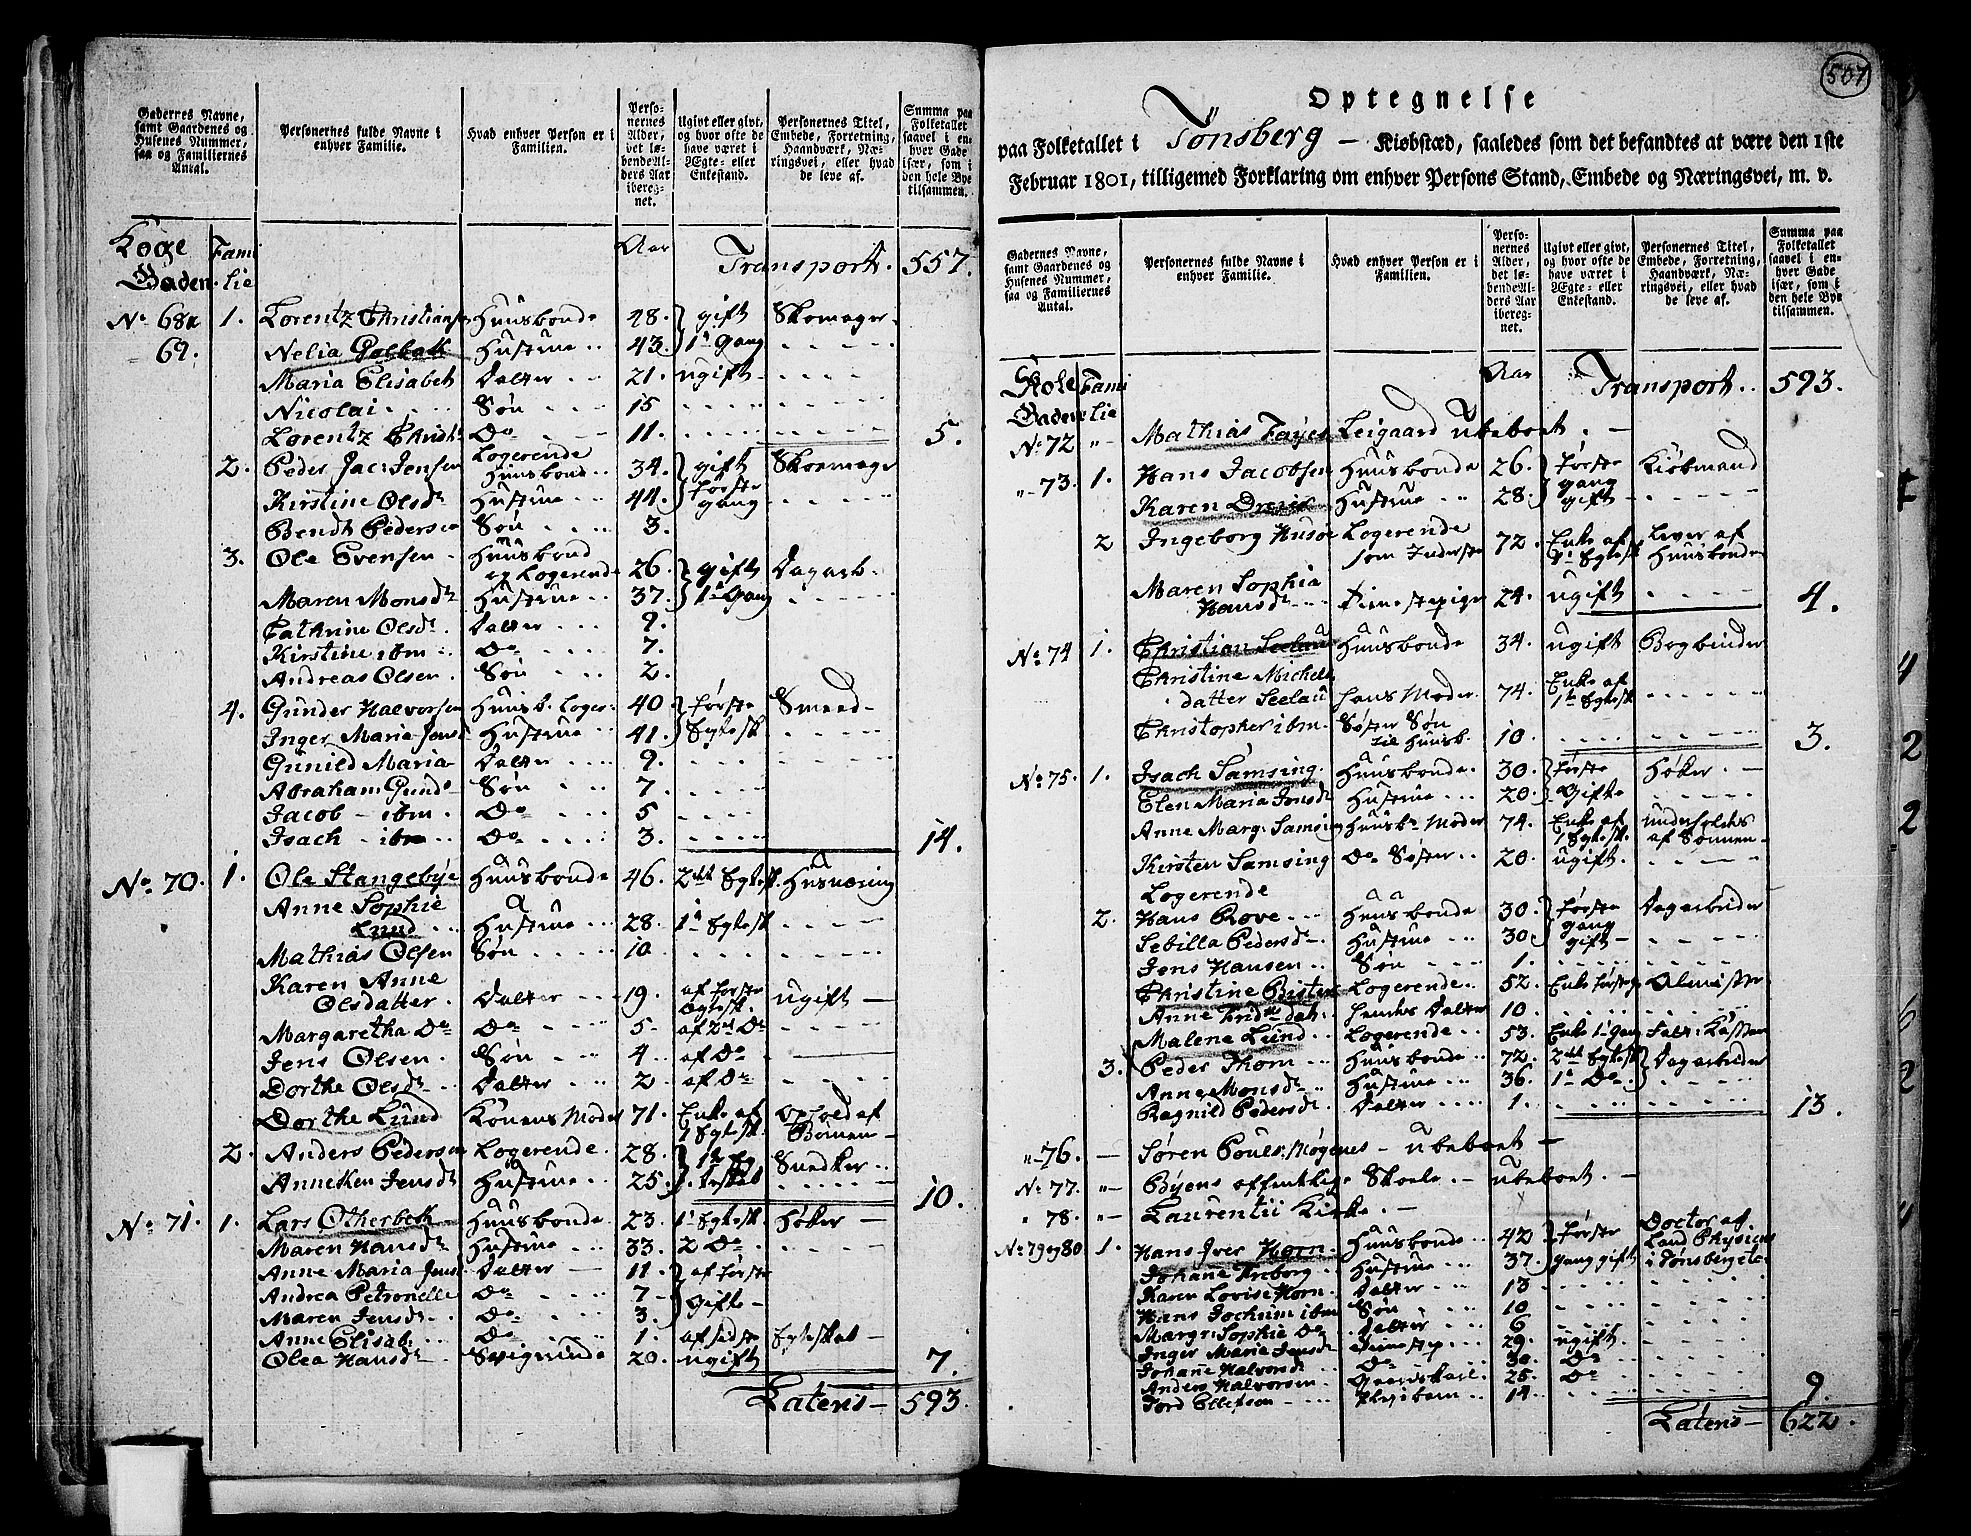 Gadernes Navne, samt Gaardenes og Husenes Nummer, saa og Familiernes Antal.
Personernes fulde Navne i enhver Familie.
Hvad enhver Person er i Familien.
Personernes Alder, det løbende Alders Aar iberegnet.
Ugivt eller givt, og hvor ofte de have været i Ægte- eller Enkestand.
Personernes Titel, Embede, Forretning, Haandværk, Næringsvei, eller hvad de leve af.
Summa paa Folketallet saavel i enhver Gade især, som i den hele Bye tilsammen.
Gaden Familie Aar Transport. 557.
No 68 & 69. 1. Lorentz Christiansen Huusbonde 48. gift Skomager
Nelia Huustrue 43. 1te Gang
Maria Elisabet Datter 21. ugift
Nicolai Søn 15
Lorentz Christ. Do 11. 5.
2. Peder Jac: Jensen Logerende Huusbond 34. gift Skomager
Kirstine Olsdr Hustrue 44. første gang
Bendt Pedersen Søn 3.
3. Ole Evensen Huusbond og Logerende 26. gift Dagarb.
Maren Monsdr Hustrue 37. 1te Gang
Cathrine Olsdr Datter 9.
Kirstine ibm Do 7.
Andreas Olsen Søn 2.
4. Gunder Halvorsen Huusb. Loger. 40 første Smed
Inger Maria Jensd Hustrue 41. Egtesk.
Gunild Maria Datter 9.
Abraham Gunds Søn 7.
Jacob ibm. Do 5
Isach ibm Do 3. 14.
No 70. 1. Ole Stangebye Huusbonde 46. 2det Egtesk. Husnæring
Anne Sophie Lund Hustrue 28. 1te Egtesk.
Mathias Olsen Søn 10
Karen Anne Olsdatter Datter 19. af første Egtesk. ugift
Margaretha Do Do 5 af 2det Do
Jens Olsen Søn 4 af Do
Dorthe Olsdr Datter 2 af Do
Dorthe Lund Konens Moder 71. Enke af 1 Egtesk. Ophold af Børnen
2. Anders Pedersen Logerende 28. Snedker
Anneken Jensdr Hustrue 25. 10.
No 71. 1. Lars Otherbech Huusbonde 23. 1te Egtesk. Høker
Maren Hansdr Hustrue 33. 2 Do
Anne Maria Jensd Datter 11 af første
Andrea Petronelle Do 7 Gifte
Maren Jensdr Do 3.
Anne Elisab. Do 1. af sidste Egteskab
Olea Hansdr Svigerinde 20. ugift 7.
Latens 593.
507
Optegnelse
paa Folketallet i Tønsberg Kiøbstæd, saaledes som det befandtes at være den 1ste
Februar 1801, tilligemed Forklaring om enhver Persons Stand, Embede og Næringsvei, m. v.
Gadernes Navne, samt Gaardenes og Husenes Nummer, saa og Familiernes Antal.
Personernes fulde Navne i enhver Familie.
Hvad enhver Person er i Familien.
Personernes Alder, det løbende Alders Aar iberegnet.
Ugivt eller givt, og hvor ofte de have været i Ægte- eller Enkestand.
Personernes Titel, Embede, Forretning, Haandværk, Næringsvei, eller hvad de leve af.
Summa paa Folketallet saavel i enhver Gade især, som i den hele Bye tilsammen.
Skole Gaden Familie Aar Transport 593.
No 72 Mathias Fayes Leigaard ubeboet
73. 1. Hans Jacobsen Huusbonde 26. første Kiøbmand
Karen Hustrue 28. gang gift
2 Ingeborg Logerende som Inderste 72. Enke af 1te Egtesk. Lever af Huusbonde
Maren Sophia Hansdr Tienestepige 24. ugift 4.
No 74 1. Christian Seelau Huusbonde 34. ugift Bogbinder
Christine Michels datter Seelau hans Moder 74. Enke af 1te Egtesk.
Christopher ibm. Søster Søn til Huusb. 10 3.
No 75. 1. Isach Samsing Huusbonde 30. første Høker
Elen Maria Jensdr Hustrue 20. Gifte
Anne Marg: Samsing Huusbs Moder 74. Enke af 1 Egtesk. underholdes af Sønnen
Kirsten Samsing Do Søster 20. ugift
Logerende
2. Hans Rove Huusbonde 30. første Dagarbeider
Sebilla Pedersdr Hustrue 30. gang gift
Jens Hansen Søn 1.
Christine Logerende 52. Enke første g. Almisse
Anne hendes Datter 10
Malene Lund Logerende 53. Enke 1te Gang Fatt: Kassen
3. Peder Thom Huusbonde 72. 2det Egtesk Dagarbeider
Anne Monsdr Hustrue 36. 1te Do
Ragnild Pedersdr Datter 1. 13.
76. Søren Pouls: Møgenes ubeboet
No 77. Byens offentlige Skoele ubeboet.
78. Laurentii Kirke.
No 79 og 80 1. Hans Iver Horn Huusbonde 42 første Doctor af Land Physicus
Johane Treborg Hustrue 37. gang gift i Tønsberg etc.
Karen Lovise Horn Datter 13
Hans Jochum ibm Søn 10
Margr: Sophie Do Datter 6
Inger Marie Jensdr Tienestep 29. ugift
Johane Halvorsdr Do 30. Do
Anders Halvorsen Gaardskarl 25. Do
Tord Ellefsen Pleiebarn 14 9.
Latens 622.